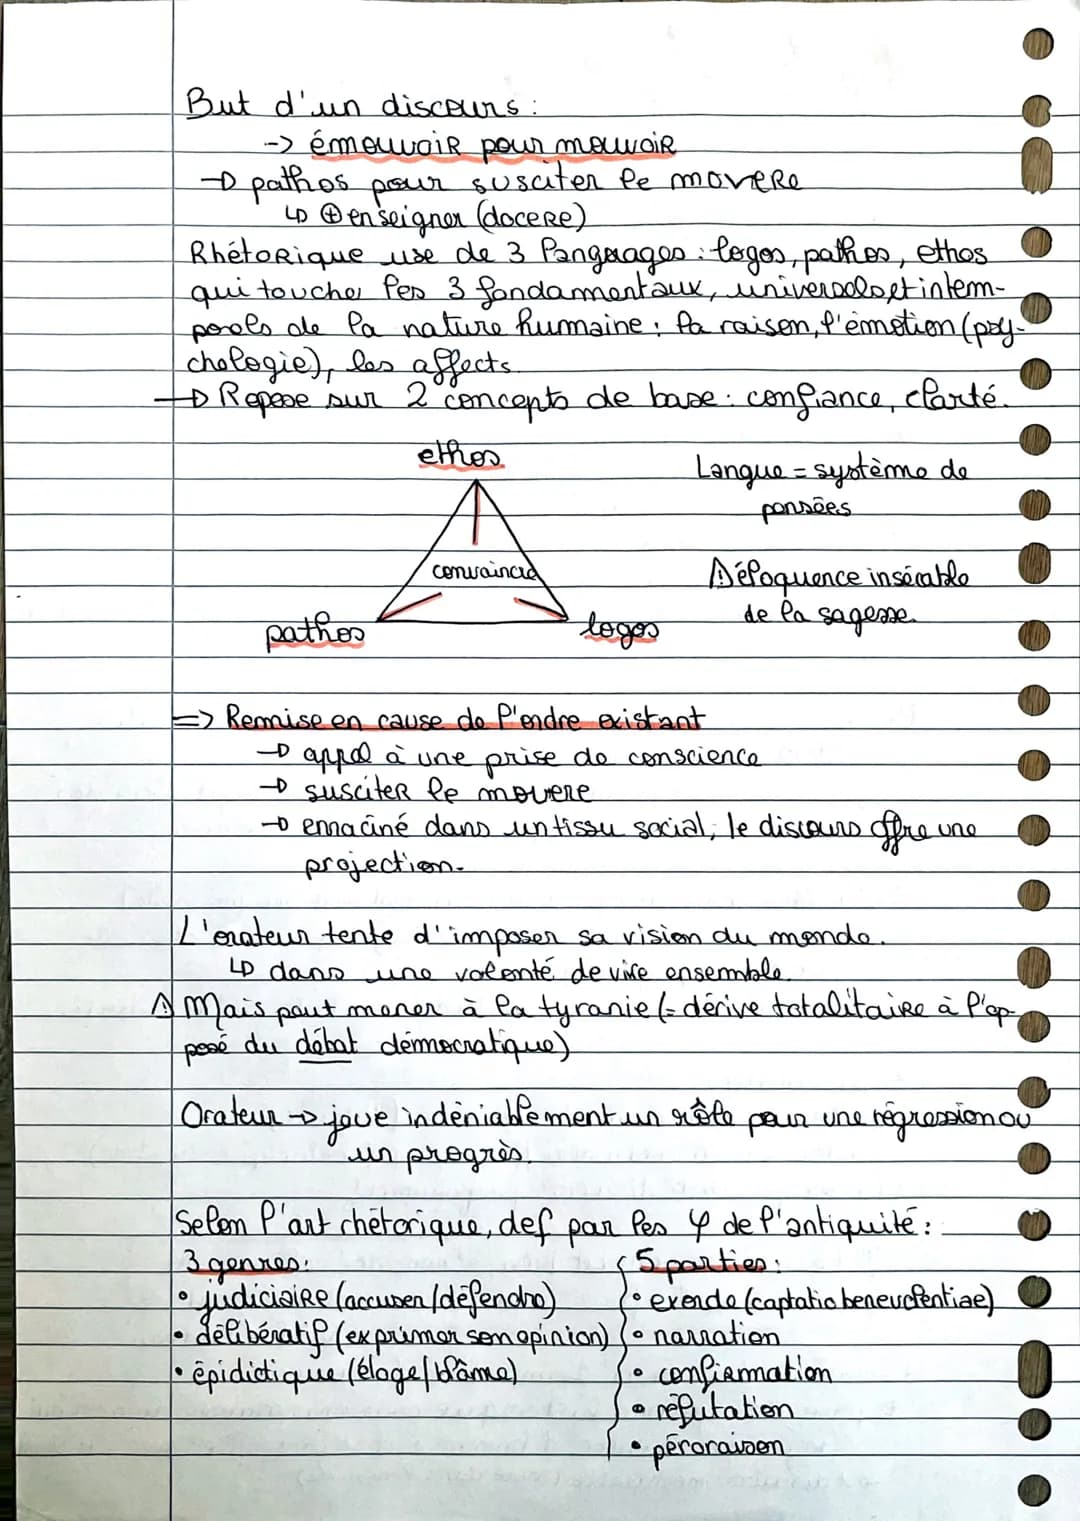 But d'un discours :
-> émouvoir pour mouvoir
→ pathos pour susciter le movere
↳ ⊕ enseigner (docere)
Rhétorique use de 3 langages : logos, pathos, ethos
qui touche les 3 fondamentaux, universels et intem-
porels de la nature humaine : la raison, l'émotion (psy-
chologie), les affects.
→ Repose sur 2 concepts de base : confiance, clarté.
ethos
Langue = système de
pensées
convaincre
⚠ éloquence insécable
de la sagesse.
pathos
logos
=> Remise en cause de l'ordre existant
→ appel à une prise de conscience
→ susciter le movere
→ enraciné dans un tissu social, le discours offre une
projection.
L'orateur tente d'imposer sa vision du monde.
↳ dans une volonté de vivre ensemble.
⚠ Mais peut mener à la tyranie (= dérive totalitaire à l'op-
posé du débat démocratique)
Orateur → joue indéniablement un rôle pour une régression ou
un progrès.
Selon l'art rhétorique, def par les φ de l'antiquité :
3 genres :
• judiciaire (accuser/défendre)
• délibératif (exprimer son opinion)
• épidictique (éloge/blâme)
5 parties :
• exorde (captatio benevolentiae)
• narration
• confirmation
• réfutation
• péroraison